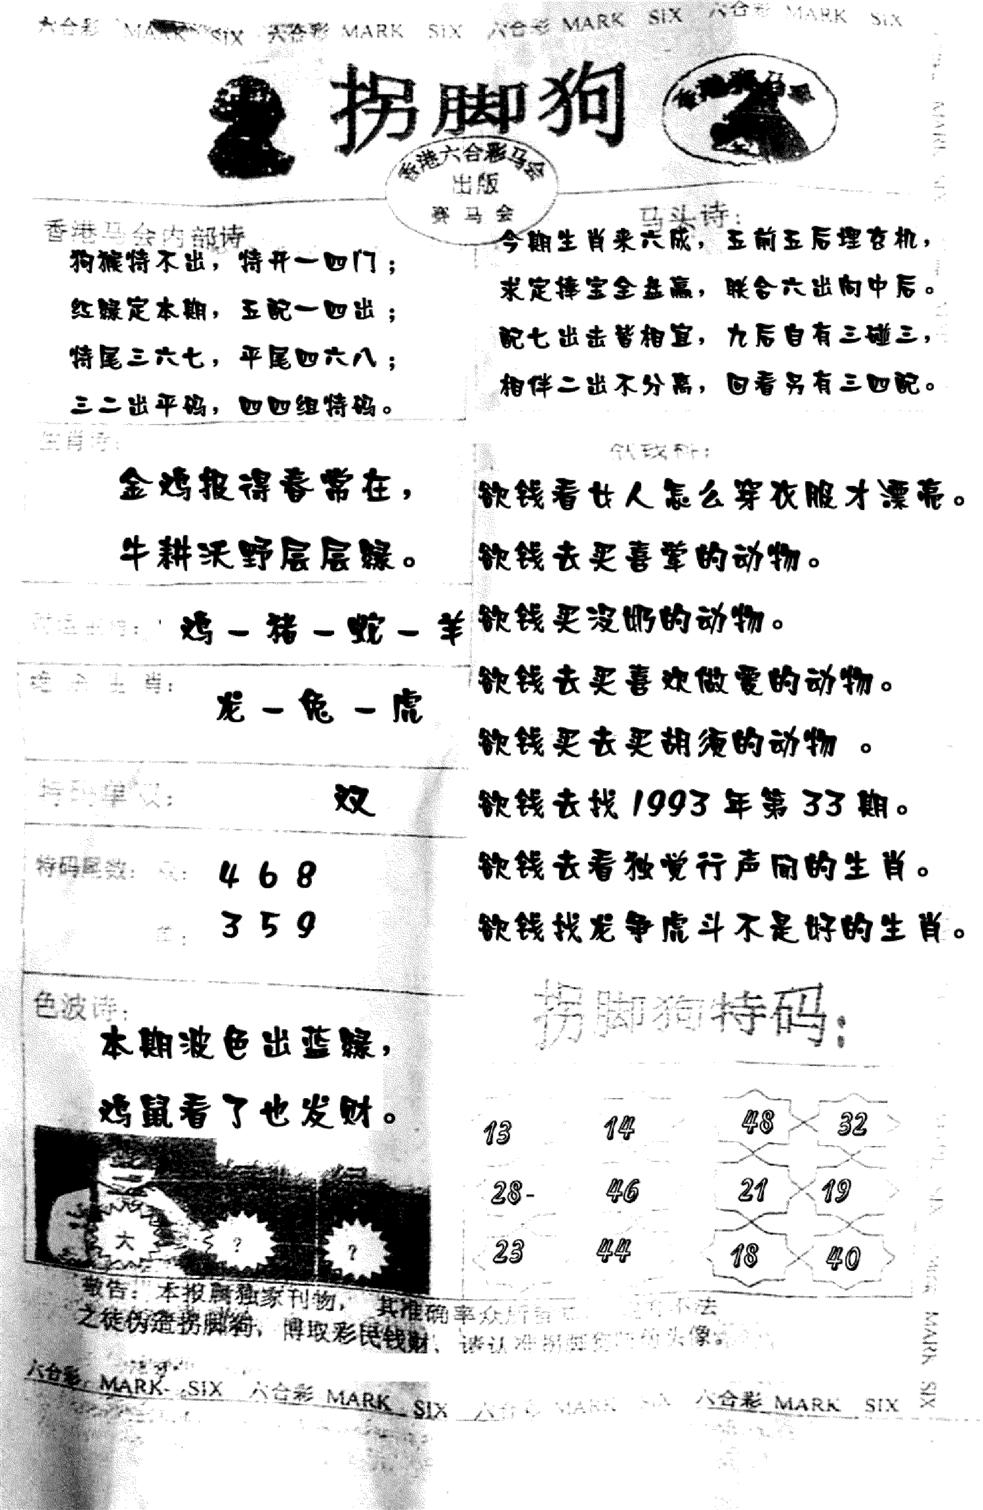 六合彩 MARK SIX 六合彩 MARK SIX 六合彩 MARK SIX 六合彩 MARK SIX
拐脚狗
香港赛马会
香港六合彩马会
出版
赛马会
香港马会内部诗
狗猴特不出，特开一四门；
红绿定本期，五配一四出；
特尾三六七，平尾四六八；
三二出平码，四四组特码。
马头诗：
今期生肖来六成，五前五后埋玄机，
求定捧宝全盘赢，联合六出向中后。
配七出击皆相宜，九后自有三碰三，
相伴二出不分离，回看另有三四配。
生肖诗：
金鸡报得春常在，
牛耕沃野层层绿。
鸡－猪－蛇－羊
绝杀生肖：
龙－兔－虎
特码单双：
双
特码尾数：双：
4 6 8
单：
3 5 9
色波诗：
本期波色出蓝绿，
鸡鼠看了也发财。
大
?
?
欲钱料：
欲钱看女人怎么穿衣服才漂亮。
欲钱去买喜荤的动物。
欲钱买没奶的动物。
欲钱去买喜欢做爱的动物。
欲钱买去买胡须的动物 。
欲钱去找1993年第33期。
欲钱去看独觉行声闻的生肖。
欲钱找龙争虎斗不是好的生肖。
拐脚狗特码：
13 14 48 32
28- 46 21 19
23 44 18 40
敬告：本报属独家刊物，其准确率众所皆 不法
之徒伪造拐脚狗，博取彩民钱财，请认准拐脚狗 头像
六合彩 MARK SIX 六合彩 MARK SIX 六合彩 MARK SIX 六合彩 MARK SIX
MARK SIX